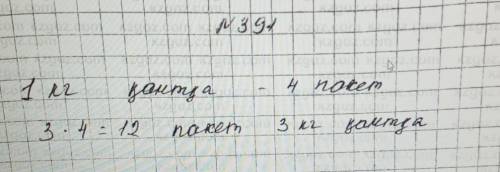 №391
1 кг қантда - 4 пакет
3 · 4 = 12 пакет 3 кг қантда